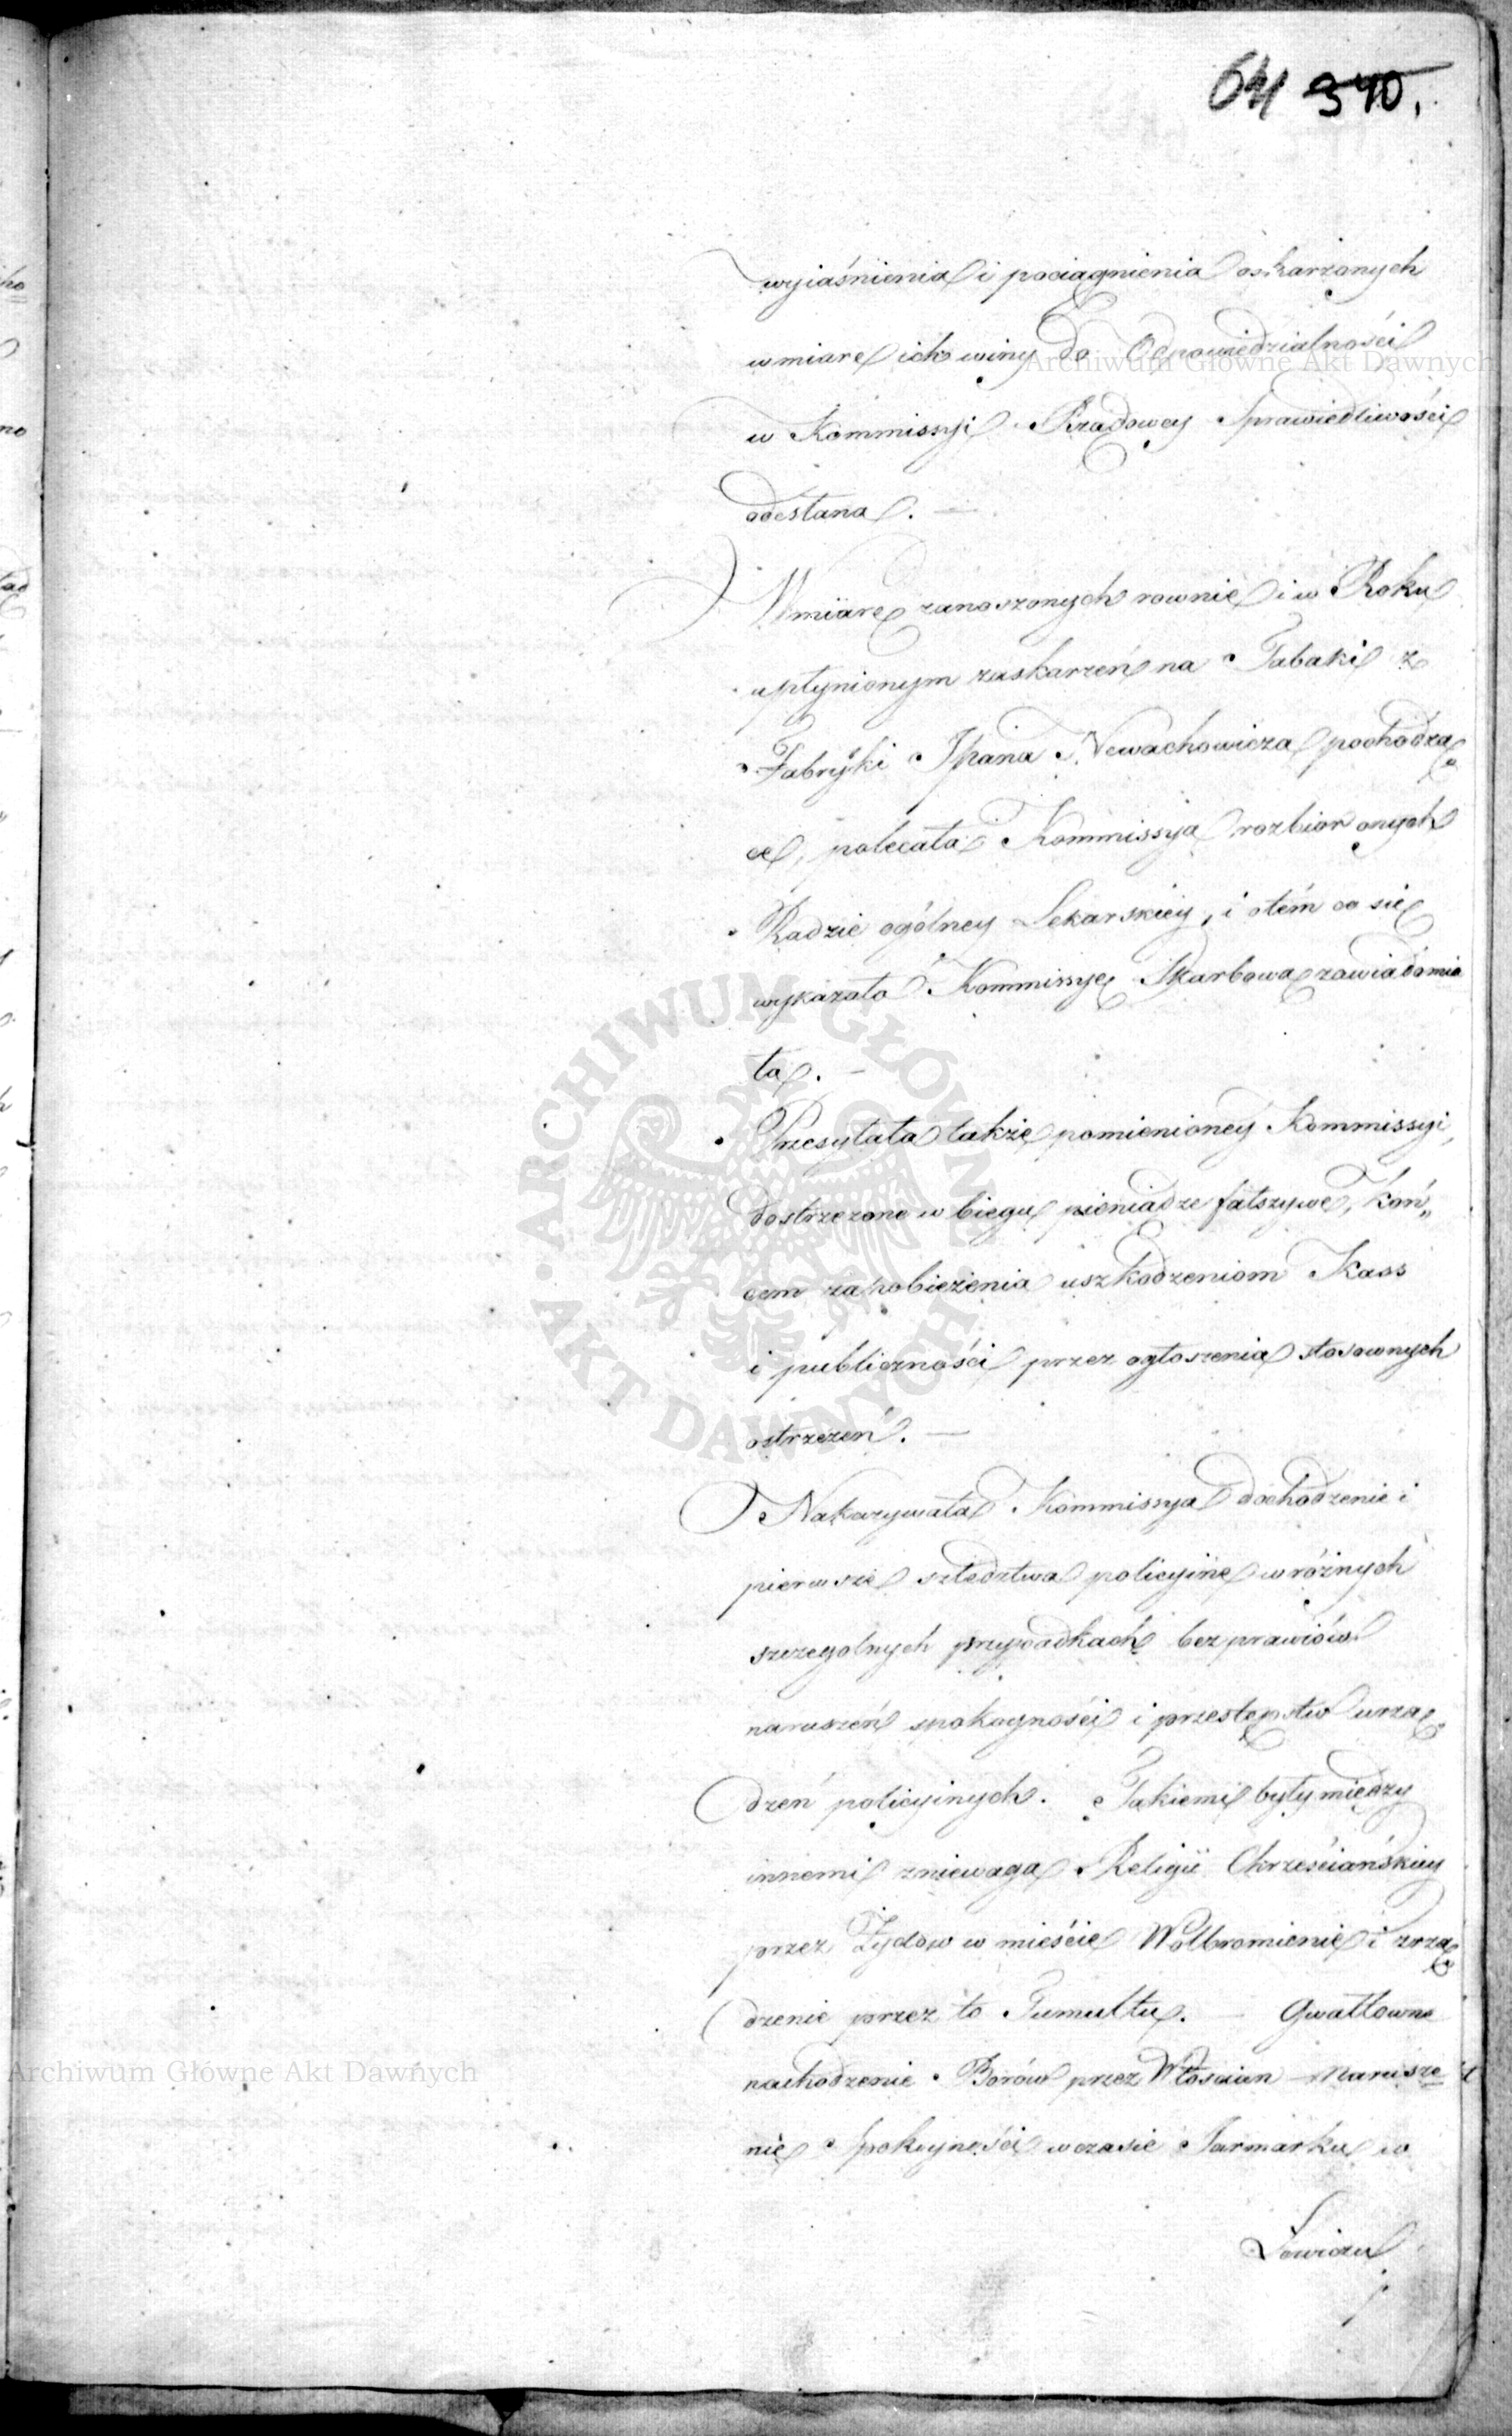 641 340.
wyiaśnienia i pociągnienia oskarzonych
w miarę ich winy do Odpowiedzialności
w Kommissyi Rządowey Sprawiedliwości
odesłana. —
W miarę zanoszonych rownie i w Roku
upłynionym zaskarzeń na Tabaki z
Fabryki JPana Newachowicza pochodzą
ce, polecała Kommissya rozbior onych
Radzie ogólney Lekarskiey, i otém co się
wykazało Kommissyę Skarbową zawiadomia
ła. —
Przesyłała także pomienioney Kommissyi,
dostrzezone w biegu pieniądze fałszywe, koń„
cem zapobieżenia uszkodzeniom Kass
i publiczności przez ogłoszenia stosownych
ostrzezeń. —
Nakazywała Kommissya dochodzenie i
pierwsze szledztwa policyine w różnych
szczegolnych przypadkach bezprawiów
naruszeń spokoyności i przestępstw urzą„
dzeń policyinych. Takiemi były między
innemi zniewaga Religii Chrześciańskiey
przez Żydow w mieście Wolbromienie i zrzą„
dzenie przez to Tumultu. — Gwałtowne
nachodzenie Borów przez Włościan — Narusze
nie Spokoyności w czasie Jarmarku w
Łowiczu
Archiwum Główne Akt Dawnych
Archiwum Główne Akt Dawnych
ARCHIWUM GŁÓWNE AKT DAWNYCH